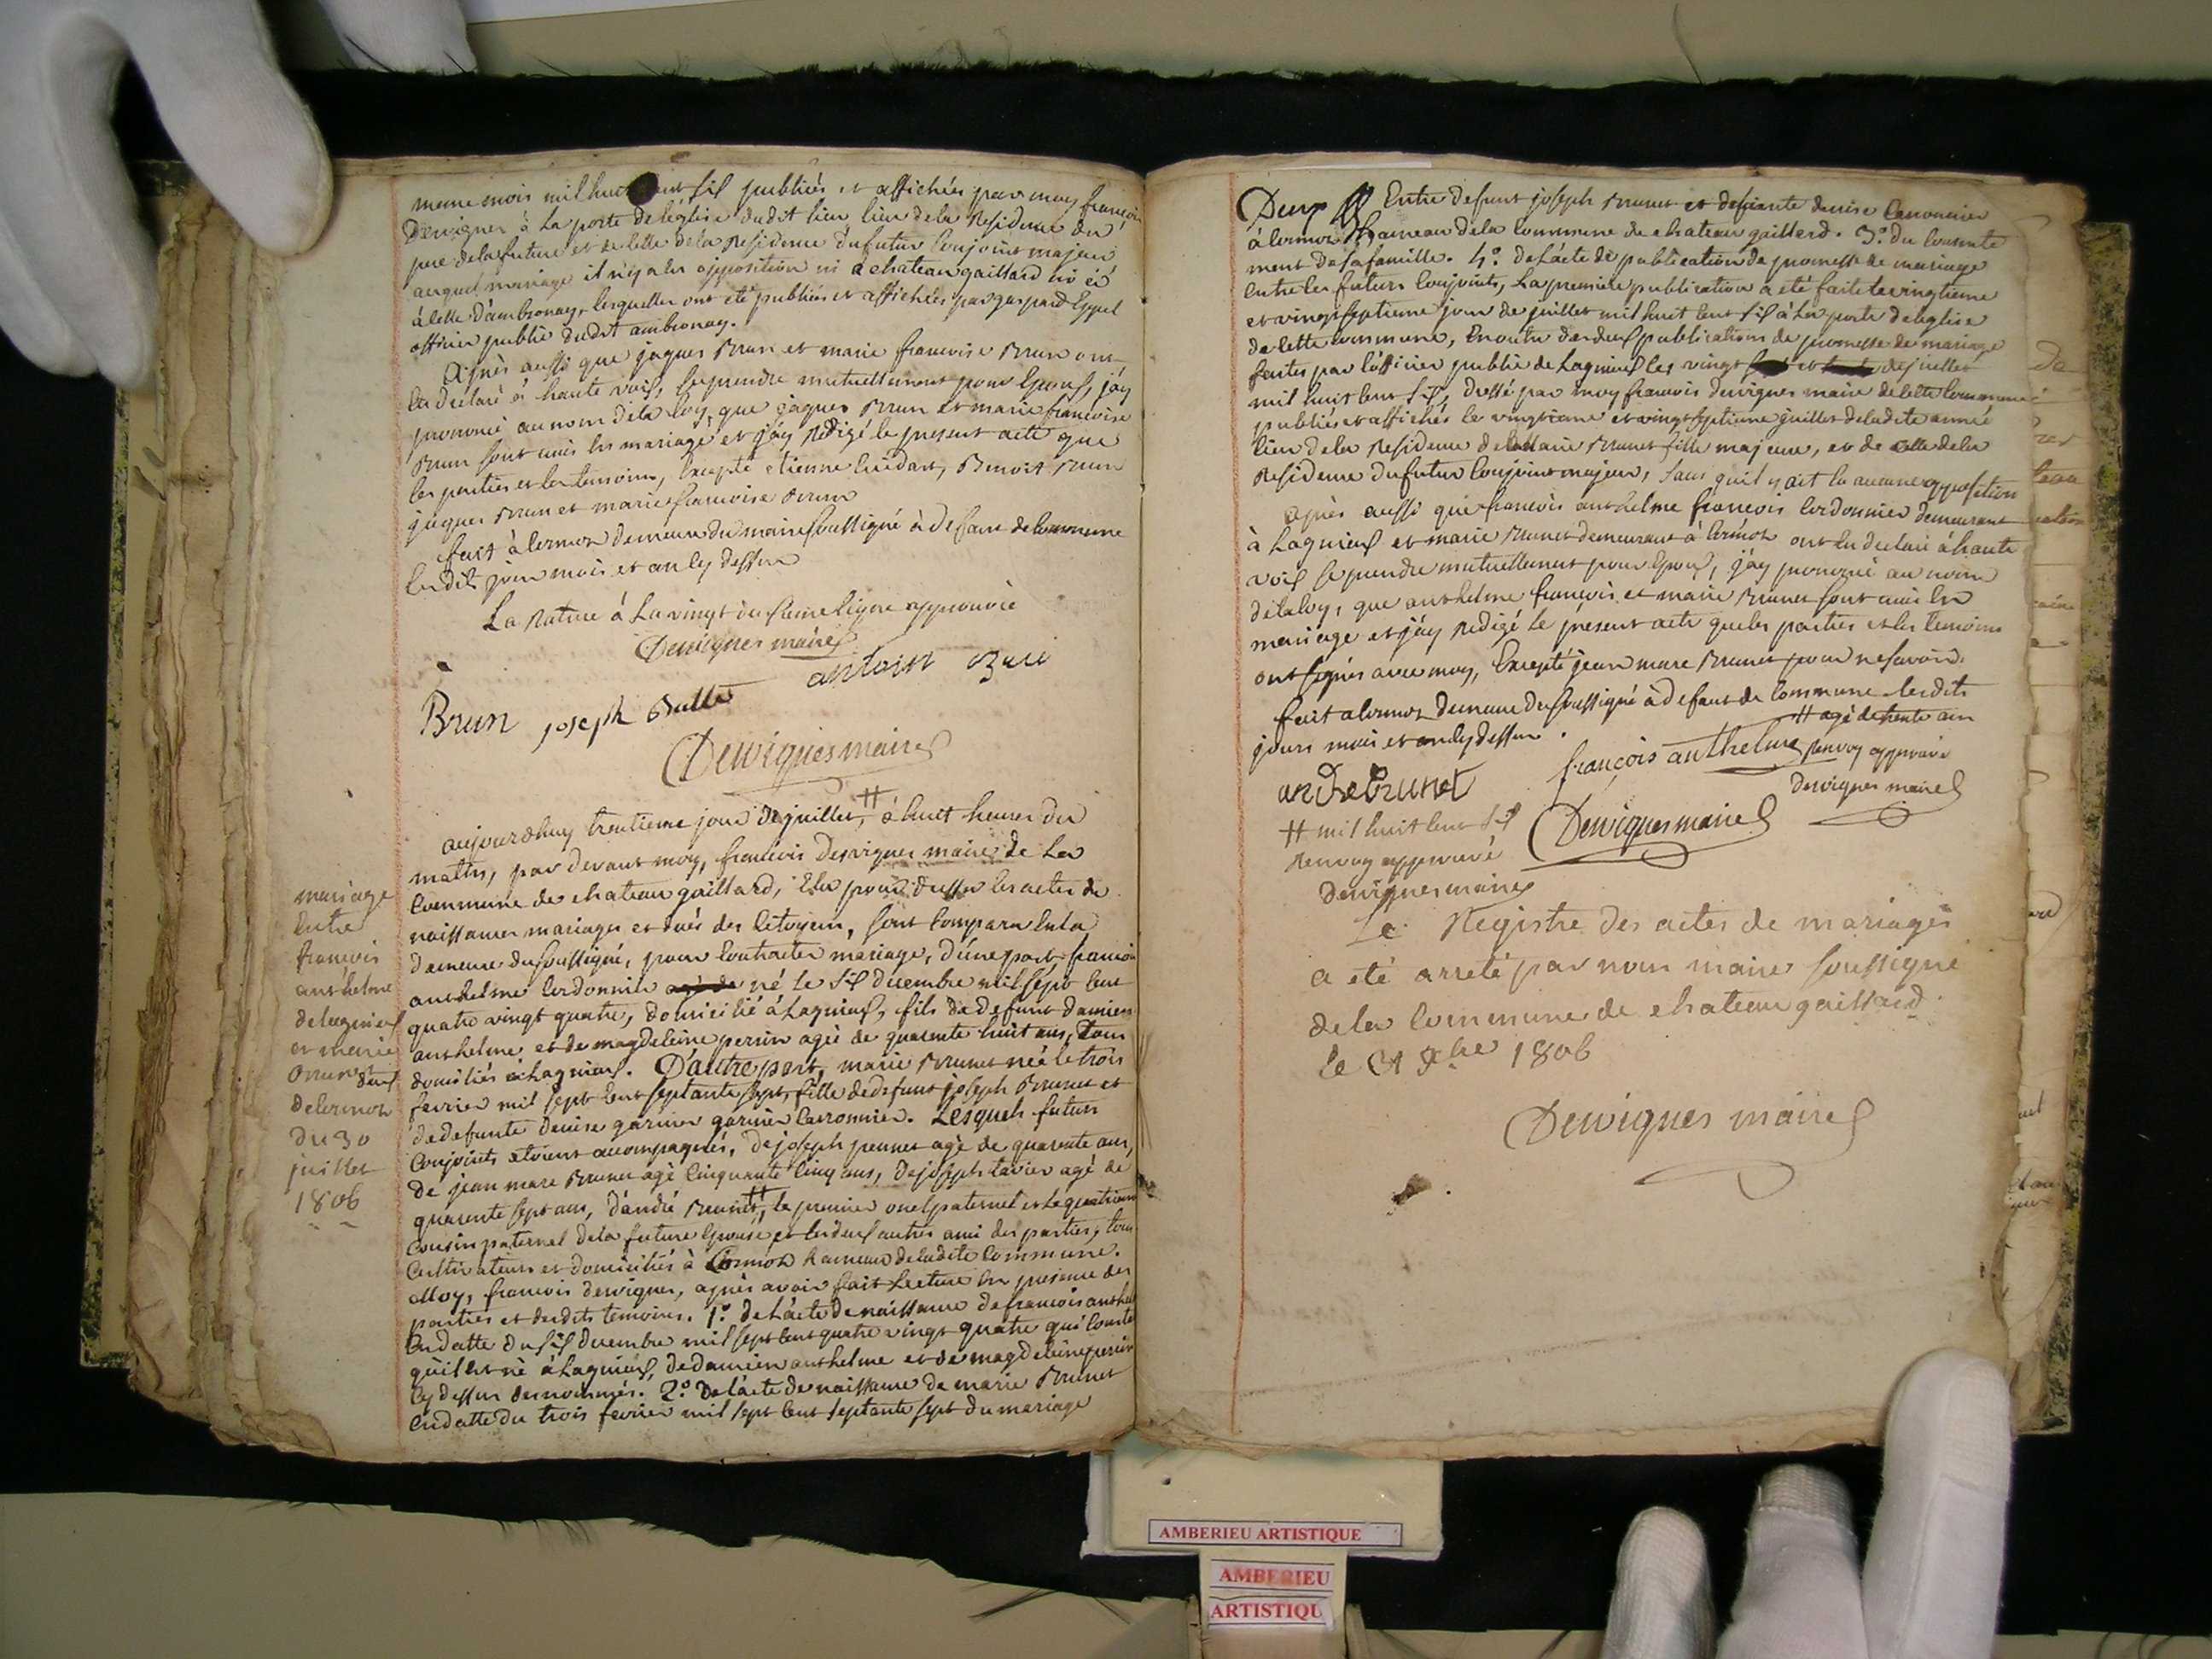 meme mois mil huit cent six publiés et affichées par moy francois
Desvignes à La porte de léglise dudit lieu lieu de la Residence du
pere de la future et de celle de la Residence du futur Conjoint majeur
auquel mariage il n'y a eu opposition ni à chateaugaillard ni
à celle d'ambronay, lesquelles ont eté publiées et affichées par gaspard
officier public dudit ambronay.
après aussi que jaques Brun et marie francoise Brun ont
Eu declaré à haute voix, se prendre mutuellement pour Epoux, j'ay
prononcé au nom de la loy, que jaques Brun et marie francoise
Brun sont unis En mariage et j'ay Redigé le present acte que
les parties et les temoins, Excepté etienne Benoit Brun
jaques Brun et marie francoise Brun
fait à Cormoz demeure du maire soussigné à defaut de Commune
Lesdits jour mois et an cy dessus
La Rature à La vingt deuxieme ligne approuvée
Desvignes maire
Brun joseph Bulle antoin
Desvignes maire
mariage
Entre
francois
anthelme
de lagnieux
et marie
Brunet
de Cormoz
du 30
juillet
1806
aujourdhuy trentieme jour de juillet, # à huit heures du
matin, par devant moy, francois Desvignes maire de La
Commune de chateaugaillard, Elu pour dresser les actes de
naissances mariages et decés des Citoyens, sont Comparu En la
demeure du soussigné, pour Contracter mariage, d'une part francois
anthelme Cordonnier agé de né le six decembre mil sept cent
quatre vingt quatre, domicilié à Lagnieux, fils de defunt damien
anthelme et de magdeleine perrin agée de quarente huit ans, tous
domiliés à Lagnieux. D'autre part, marie Brunet née le trois
fevrier mil sept cent septante sept, fille de defunt joseph Brunet et
de defunte denise garnier garnier Cavonnier. Lesquels futurs
Conjoints etoient accompagnés, de joseph agé de quarente ans,
de jean marc Brunet agé Cinquante Cinq ans, de joseph tavier agé de
quarente sept ans, d'andré Brunet, # le premier oncl paternel et le quatrieme
Cousin paternel de la future Epouse et les deux autres ami des parties, tous
Cultivateurs et domiciliés à Cormoz hameau de ladite Commune.
Moy, francois desvignes, après avoir fait Lecture En presence des
parties et desdits temoins. 1º. de L'acte de naissance de francois anthelme
En datte du six decembre mil sept cent quatre vingt quatre qui Constate
qu'il est né à Lagnieux, de damien anthelme et de magdeleine perrin
cy dessus denommés. 2º. de l'acte de naissance de marie Brunet
En datte du trois fevrier mil sept cent septante sept du mariage
Entre defunt joseph Brunet et defunte denise Cavonnier
à Cormoz hameau de la Commune de chateaugaillard. 3º. du Consente
ment de sa famille. 4º. de L'acte de publication de promesse de mariage
Entre les futurs Conjoints, La premiere publication a eté faite le vingtieme
et vingt septieme jour de juillet mil huit cent six à La porte de leglise
de Cette commune, En outre des deux publications de promesse de mariage
faites par l'officier public de Lagnieux les vingt et de juillet
mil huit cent six, dressé par moy francois desvignes maire de Cette Commune
publiés et affichés le vingtieme et vingt septieme juillet de ladite année
lieu de la Residence de Marie Brunet fille majeure, et de celle de la
Residence du futur Conjoint majeur, sans qu'il y ait Eu aucune opposition
après aussi que francois anthelme francois Cordonnier demeurant
à Lagnieux et marie Brunet demeurant à Cormoz ont Eu declaré à haute
voix se prendre mutuellement pour Epoux, j'ay prononcé au nom
de la loy, que anthelme francois et marie Brunet sont unis En
mariage et j'ay Redigé le present acte que les parties et les temoins
ont signés avec moy, Excepté jean marc Brunet pour ne savoir.
fait a Cormoz demeure du soussigné à defaut de Commune Lesdits
jours mois et an cy dessus.
# agé de trente ans
Renvoy approuvé
desvignes maire
françois anthelme
andre brunet
# mil huit cent six
Renvoy approuvé
desvignes maire
Desvignes maire
Le Registre des actes de mariages
a eté arreté par nous maire soussigné
de la Commune de chateaugaillard.
le 31 xbre 1806
Desvignes maire
AMBERIEU ARTISTIQUE
AMBERIEU
ARTISTIQU